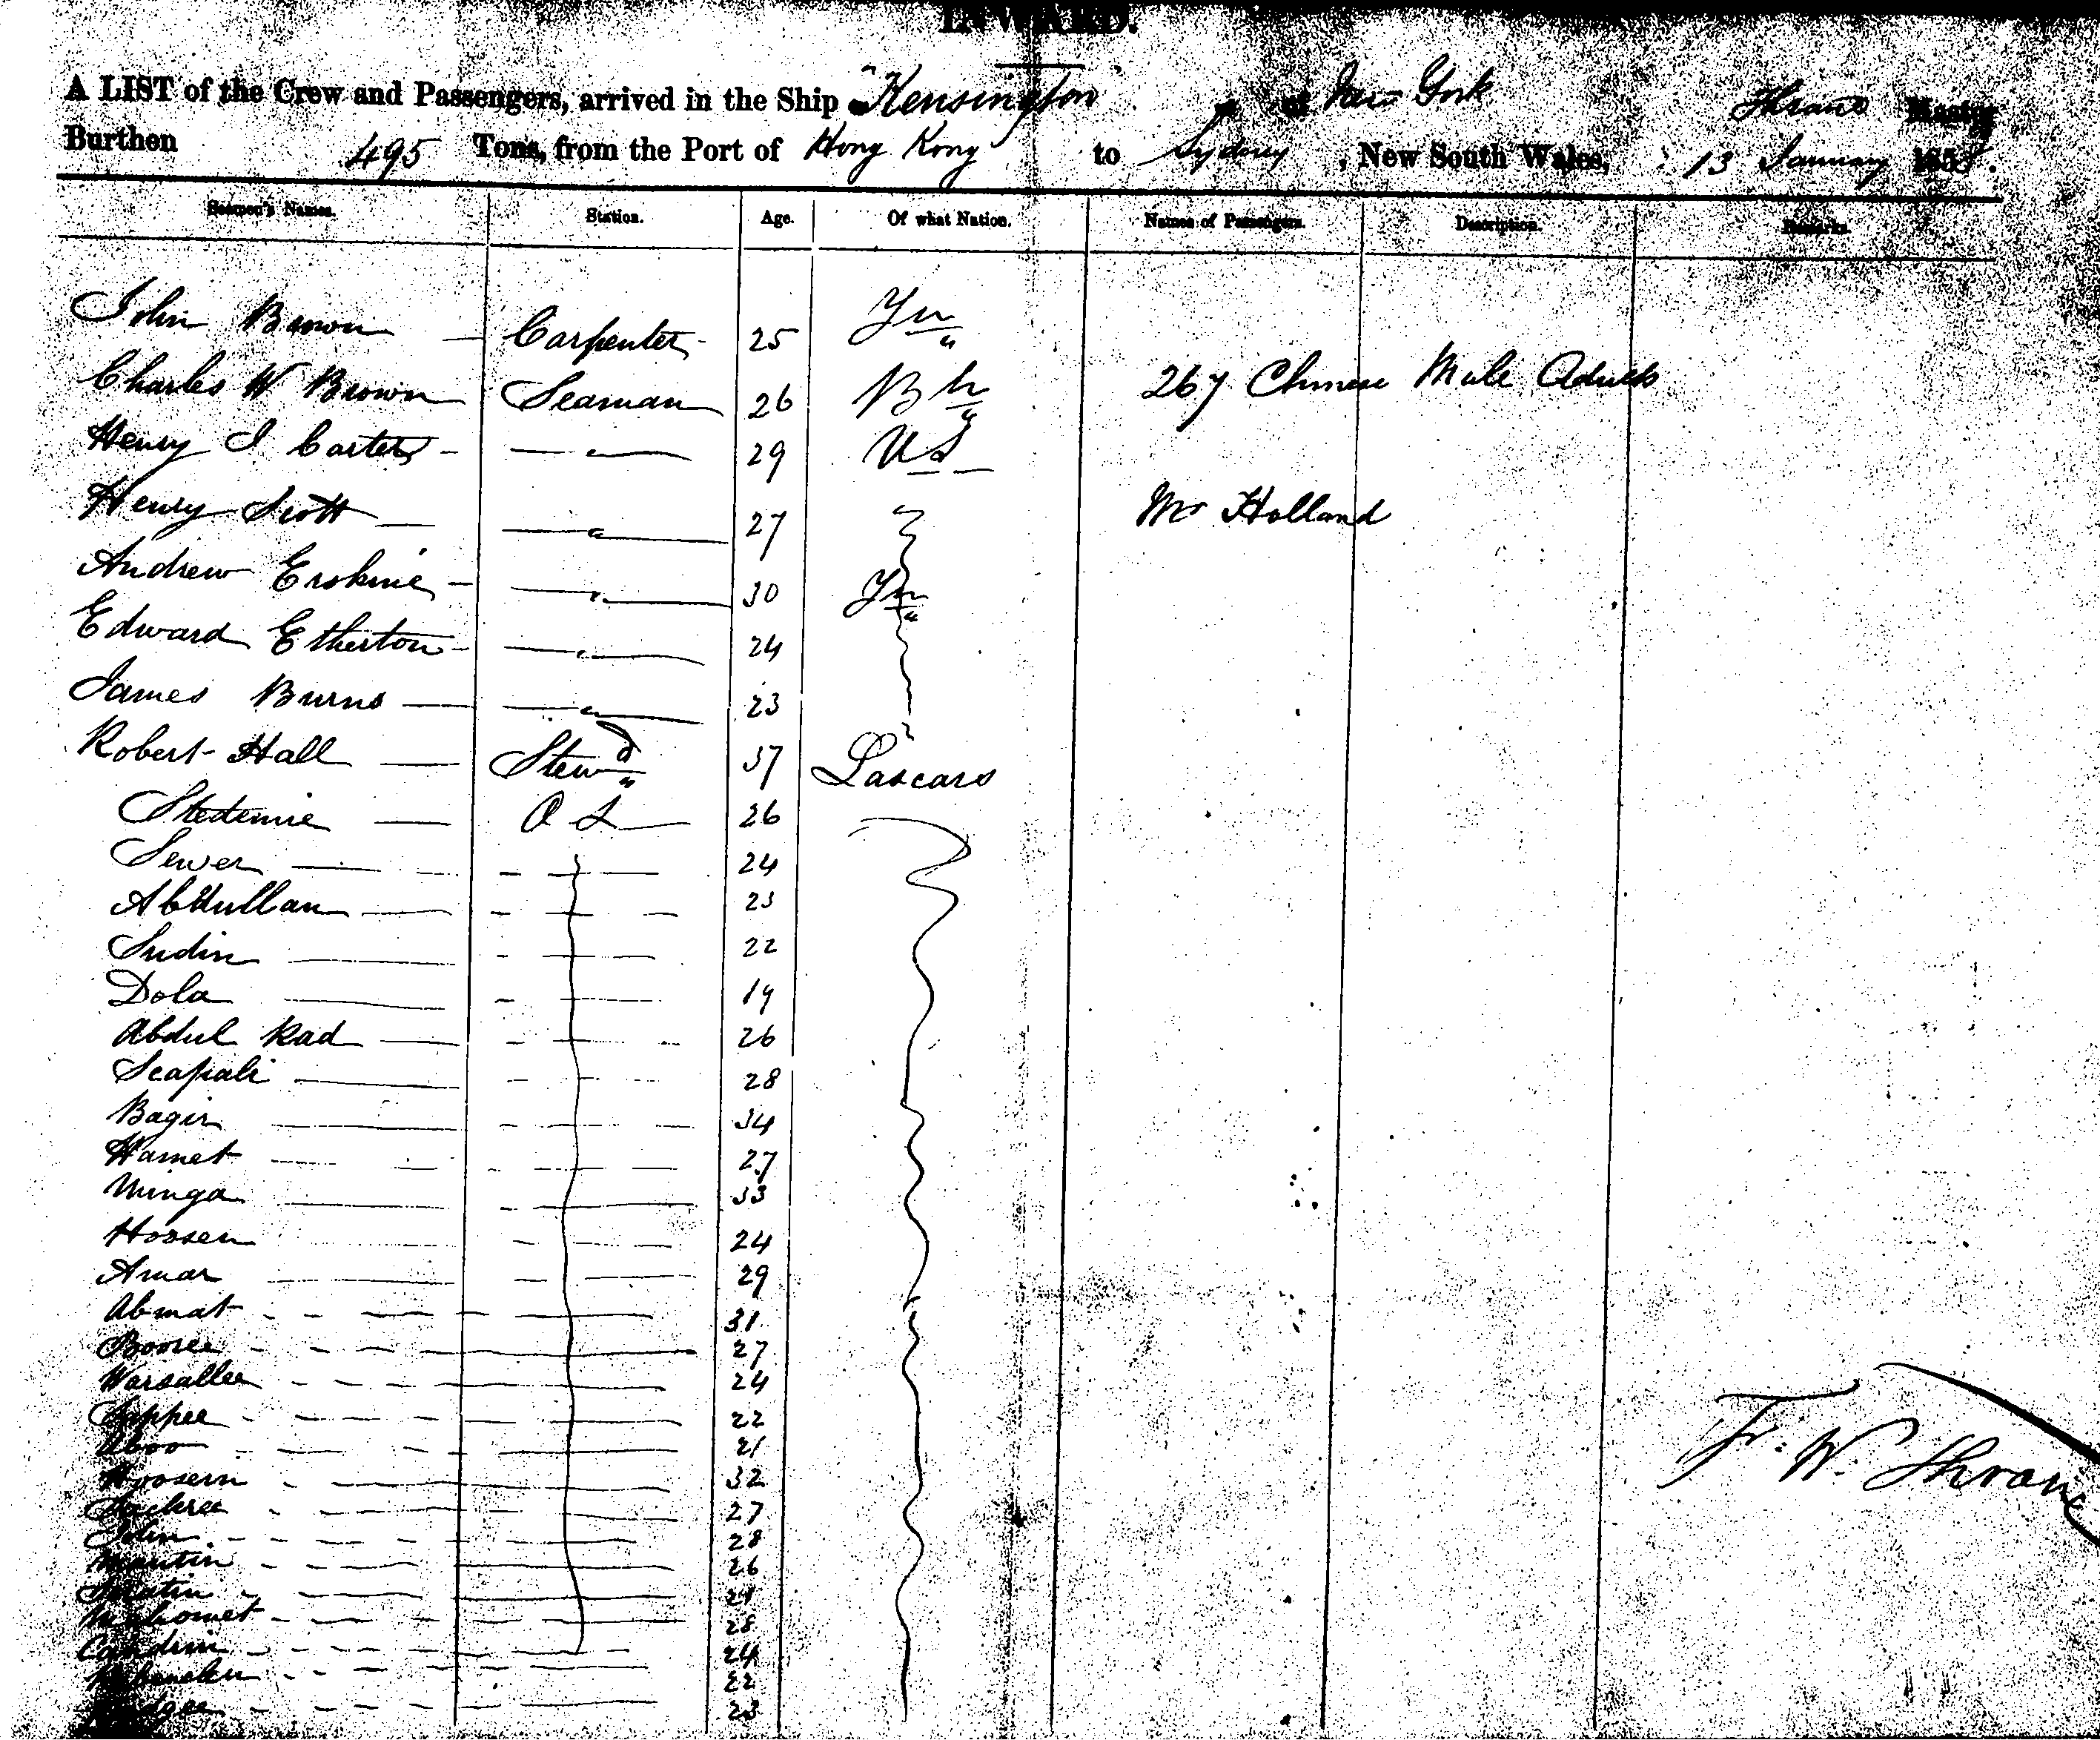 INWARD.
A LIST of the Crew and Passengers, arrived in the Ship "Kensington" of New York Master
Burthen 495 Tons, from the Port of Hong Kong to Sydney, New South Wales, 13 January 1858.
Seamen's Names. Station. Age. Of what Nation. Names of Passengers. Description. Remarks.
John Brown — Carpenter 25
Charles W Brown Seaman 26 267 Chinese Male Adults
Henry J Carter — " — 29 U S
Henry Scott — " — 27 Mr Holland
Andrew Erskine — " — 30
Edward Etherton — " — 24
James Burns — " — 23
Robert Hall — Stewd 37 Lascars
O S 26
Sewer — 24
Abdullan — 23
Sudin — 22
Dola — 19
Abdul Rad — 26
Scapali — 28
Bagir — 34
Hamet — 27
Minga — 33
Hoosen — 24
Amar — 29
Abmat — 31
Booree — 27
Warsallee — 24
22
Aboo — 21
Hoosein — 32
27
John — 28
Mantin — 26
Mahomet — 28
24
22
23
F. W. Shrane